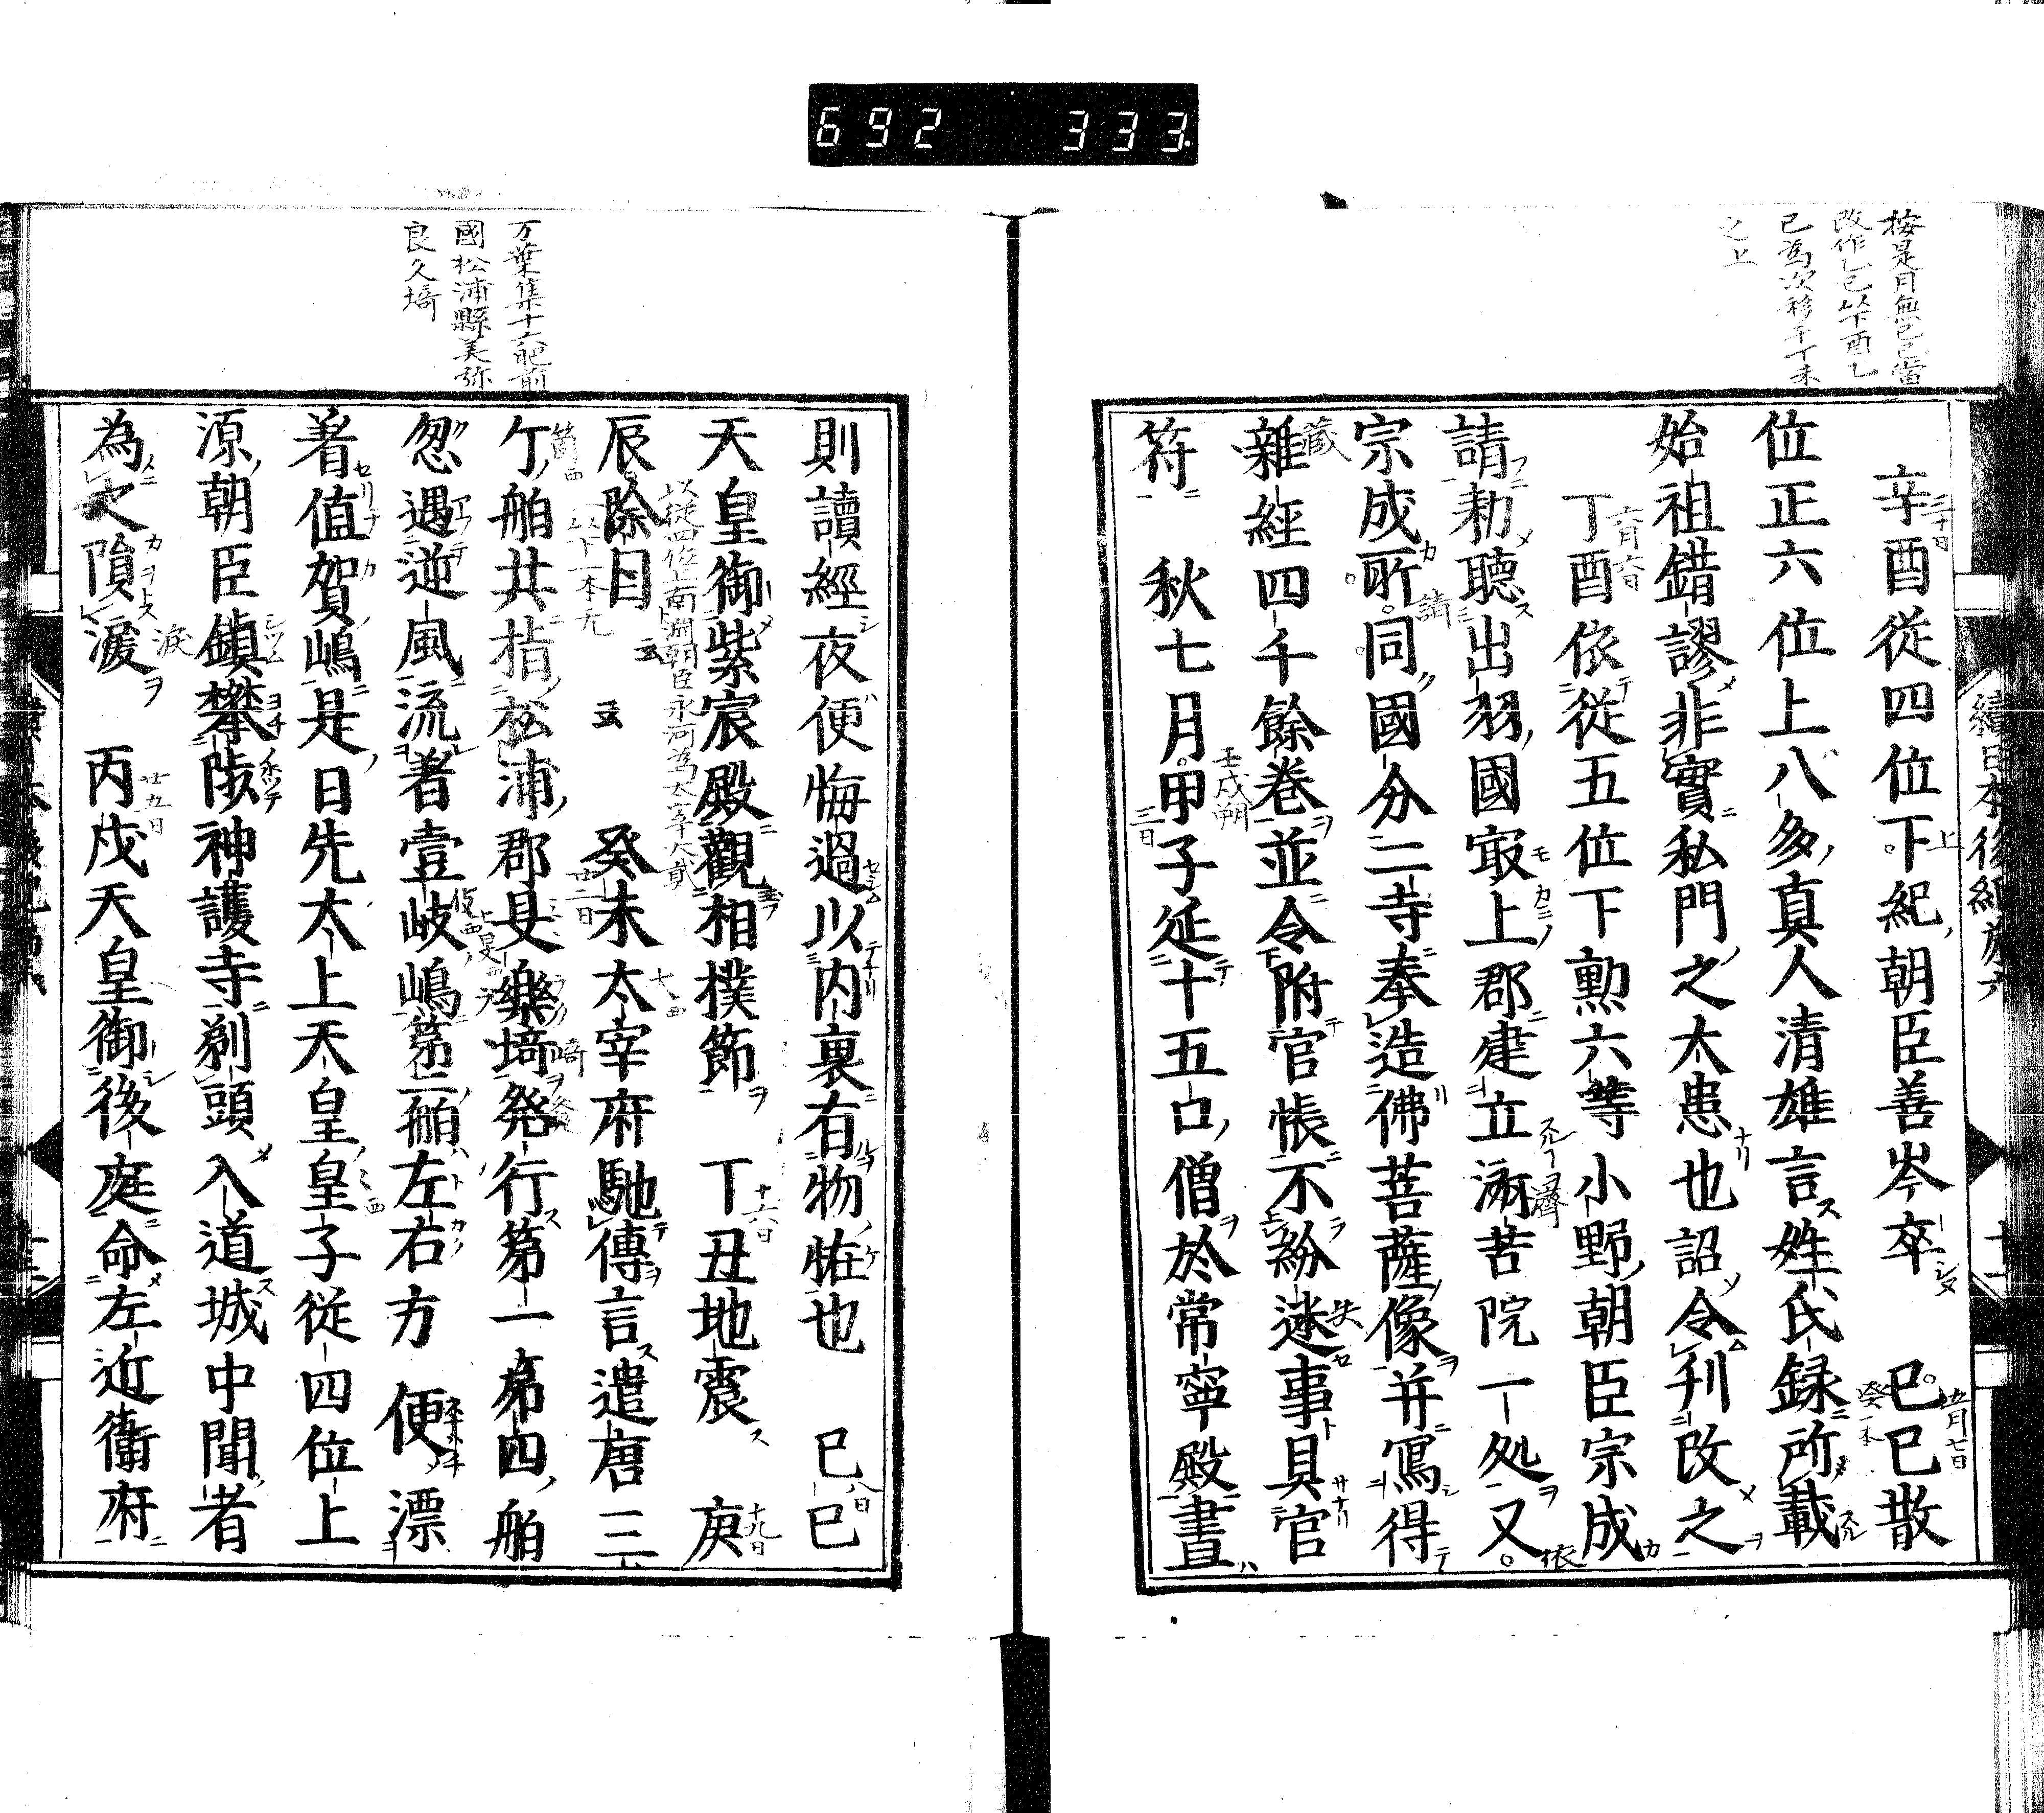 692 333
按是月無己巳當
改作乙巳以下酉乙
巳為次移于丁未
之上
辛酉從四位下紀朝臣善岑卒 己巳散
位正六位上八多真人清雄言姓氏録所載
始祖錯謬非實私門之大患也詔令刋改之
丁酉依從五位下勲六等小野朝臣宗成
請勅聽出羽國㝡上郡建立済苦院一処又
宗成所同國分二寺奉造佛菩薩像并寫得
雜經四千餘巻並令附官帳不紛迯事具官
符 秋七月甲子延十五口僧於常寧殿晝
則讀經夜便悔過以内裏有物恠也 己巳
天皇御紫宸殿觀相撲節 丁丑地震 庚
辰除目云云 癸未太宰府馳傳言遣唐三
ケ舶共指松浦郡旻樂埼発行第一第四舶
忽遇逆風流著壹岐嶋第二舶左右方便漂
着値賀嶋是日先太上天皇皇子從四位上
源朝臣鎮攀陟神護寺剃頭入道城中聞者
為之隕涙 丙戌天皇御後庭命左近衛府
万葉集十六肥前
國松浦縣美弥
良久埼
以從四位上南淵朝臣永河為太宰大貳